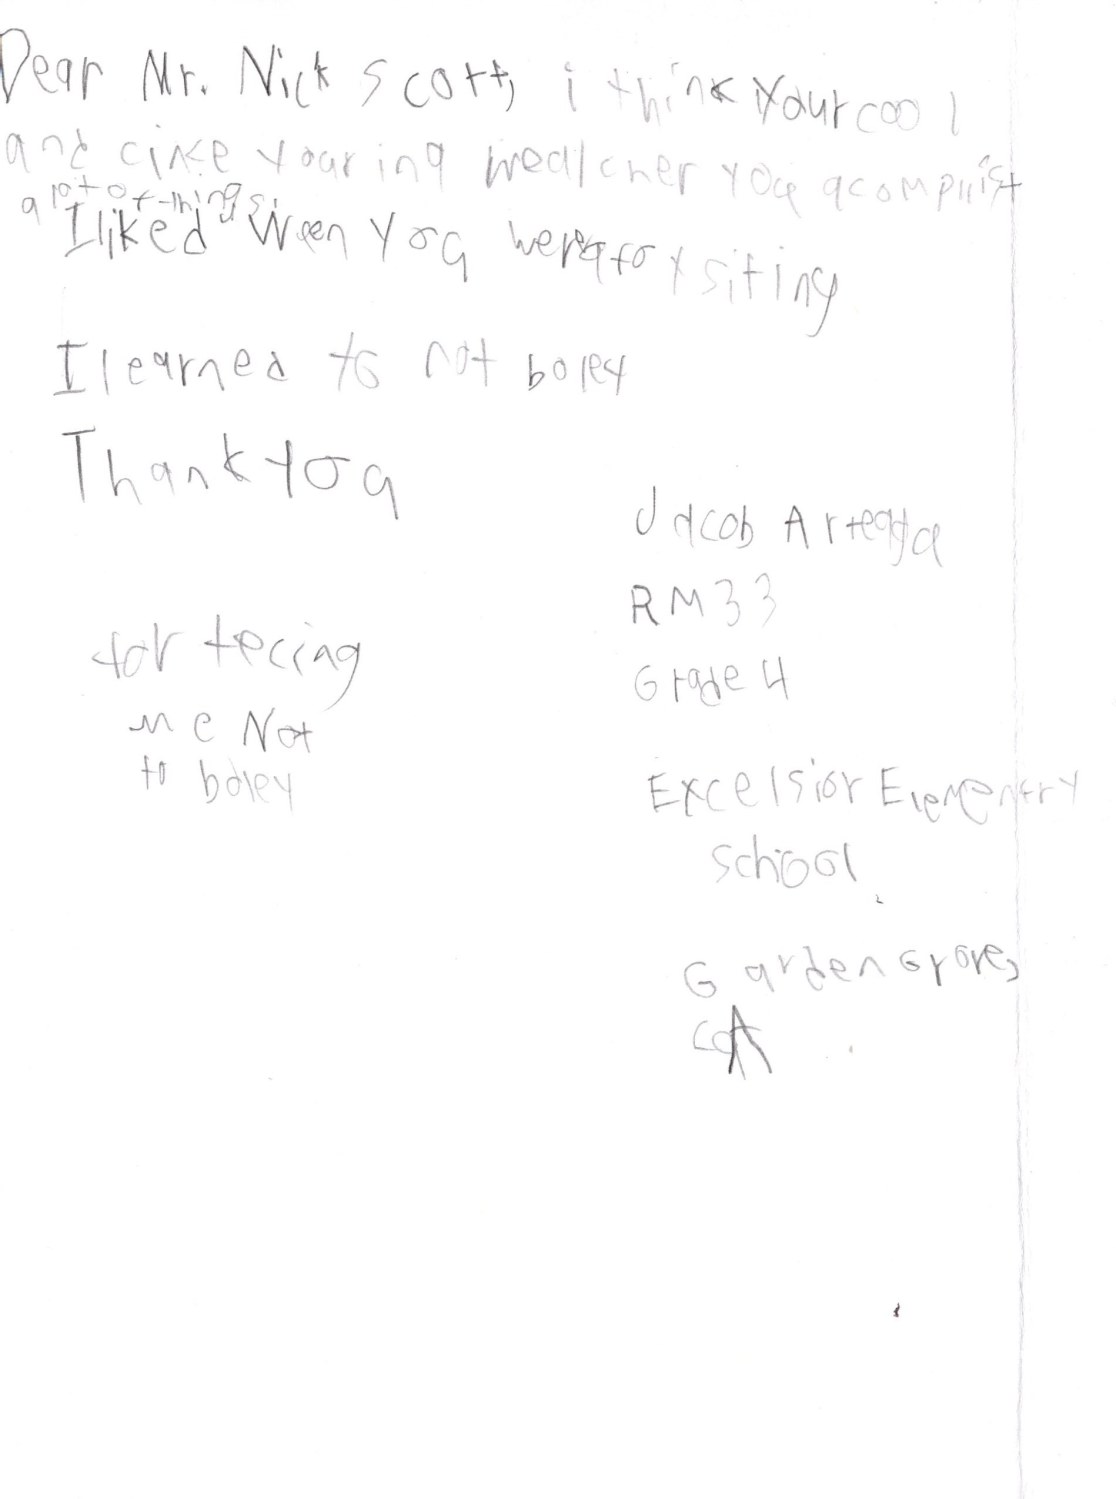 Dear Mr. Nick Scott, i think your cool
and cince your ing wealcher you acomplist
a lot of things.
I liked ween you were for y siting
I learned to not boley
Thank you
for tecing
me Not
to boley
Jacob Arteaga
RM33
Grade 4
Excelsior Elementry
School
Garden Grove,
CA